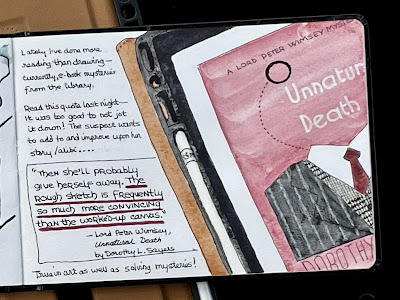 Lately I've done more
reading than drawing—
currently, e-book mysteries
from the library.
Read this quote last night—
it was too good to not jot
it down! The suspect wants
to add to and improve upon her
story/alibi....
"Then she'll probably
give herself away. The
rough sketch is frequently
so much more convincing
than the worked-up canvas."
— Lord Peter Wimsey,
Unnatural Death
by Dorothy L. Sayers
True in art as well as solving mysteries!
A LORD PETER WIMSEY MYSTE
Unnatur
Death
DOROTHY